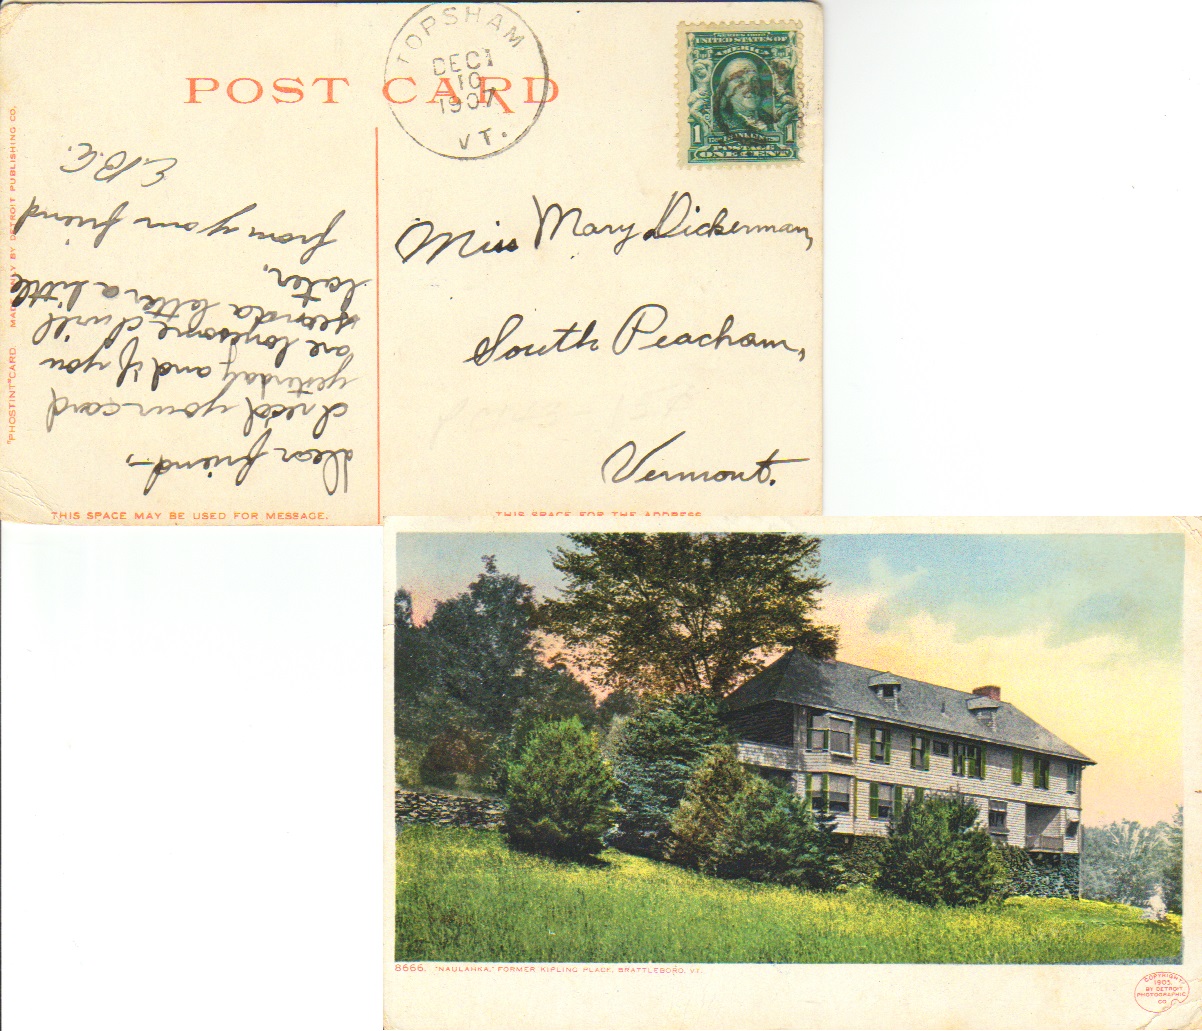 POST CARD
TOPSHAM
DEC 1
10
1907
VT.
SERIES 1902
UNITED STATES OF
AMERICA
1 FRANKLIN 1
POSTAGE
ONE CENT
Miss Mary Dickerman,
South Peacham,
Vermont.
Dear friend—,
I rec'd your card
yesterday and if you
are lonesome I will
send a letter a little
later.
from your friend
E.B.C.
"PHOSTINT" CARD. MADE ONLY BY DETROIT PUBLISHING CO.
THIS SPACE MAY BE USED FOR MESSAGE.
THIS SPACE FOR THE ADDRESS
8666. "NAULAHKA," FORMER KIPLING PLACE, BRATTLEBORO, VT.
COPYRIGHT
1905
BY DETROIT
PHOTOGRAPHIC
CO.